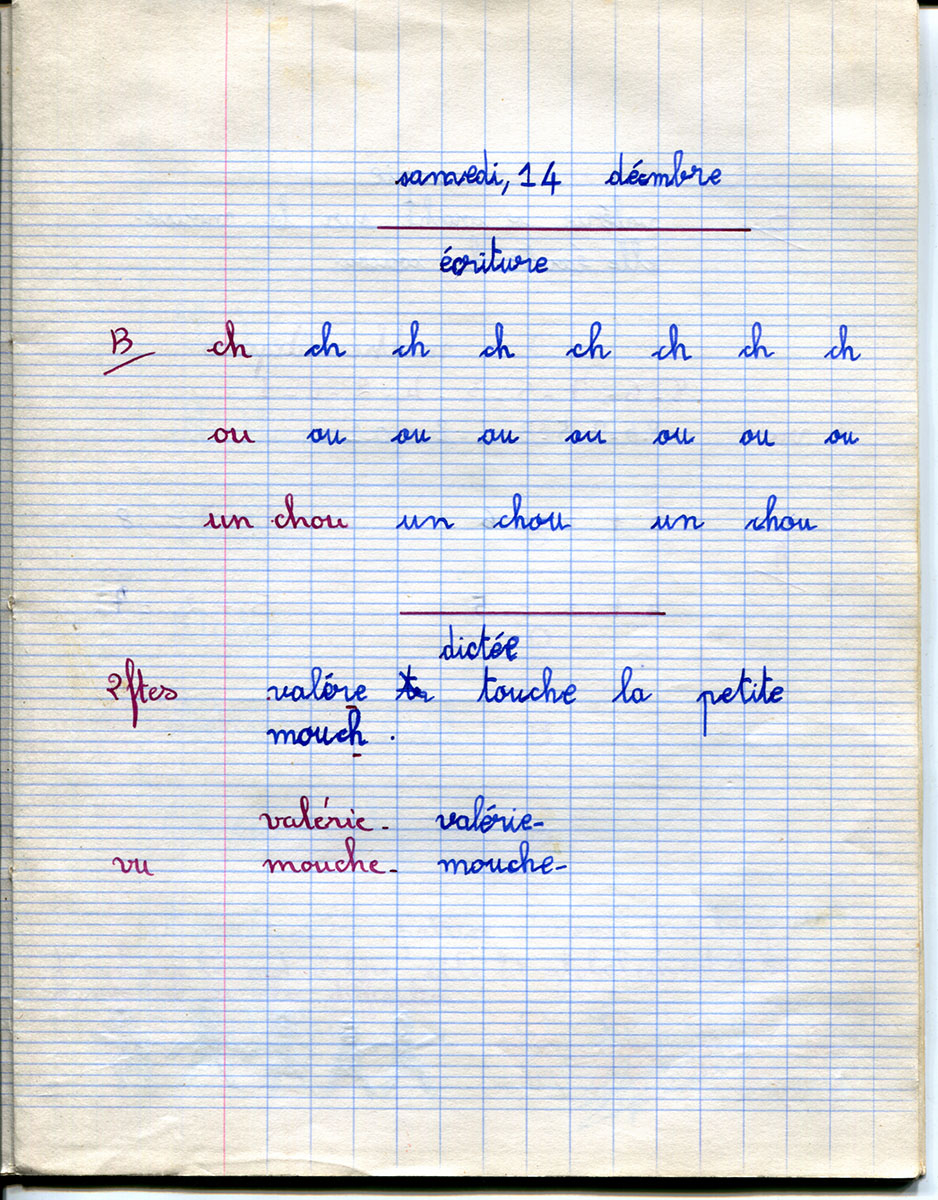 samedi, 14 décembre
écriture
B ch ch ch ch ch ch ch ch
ou ou ou ou ou ou ou ou
un chou un chou un chou
dictée
2 ftes valére touche la petite
mouch .
valérie - valérie -
vu mouche - mouche -